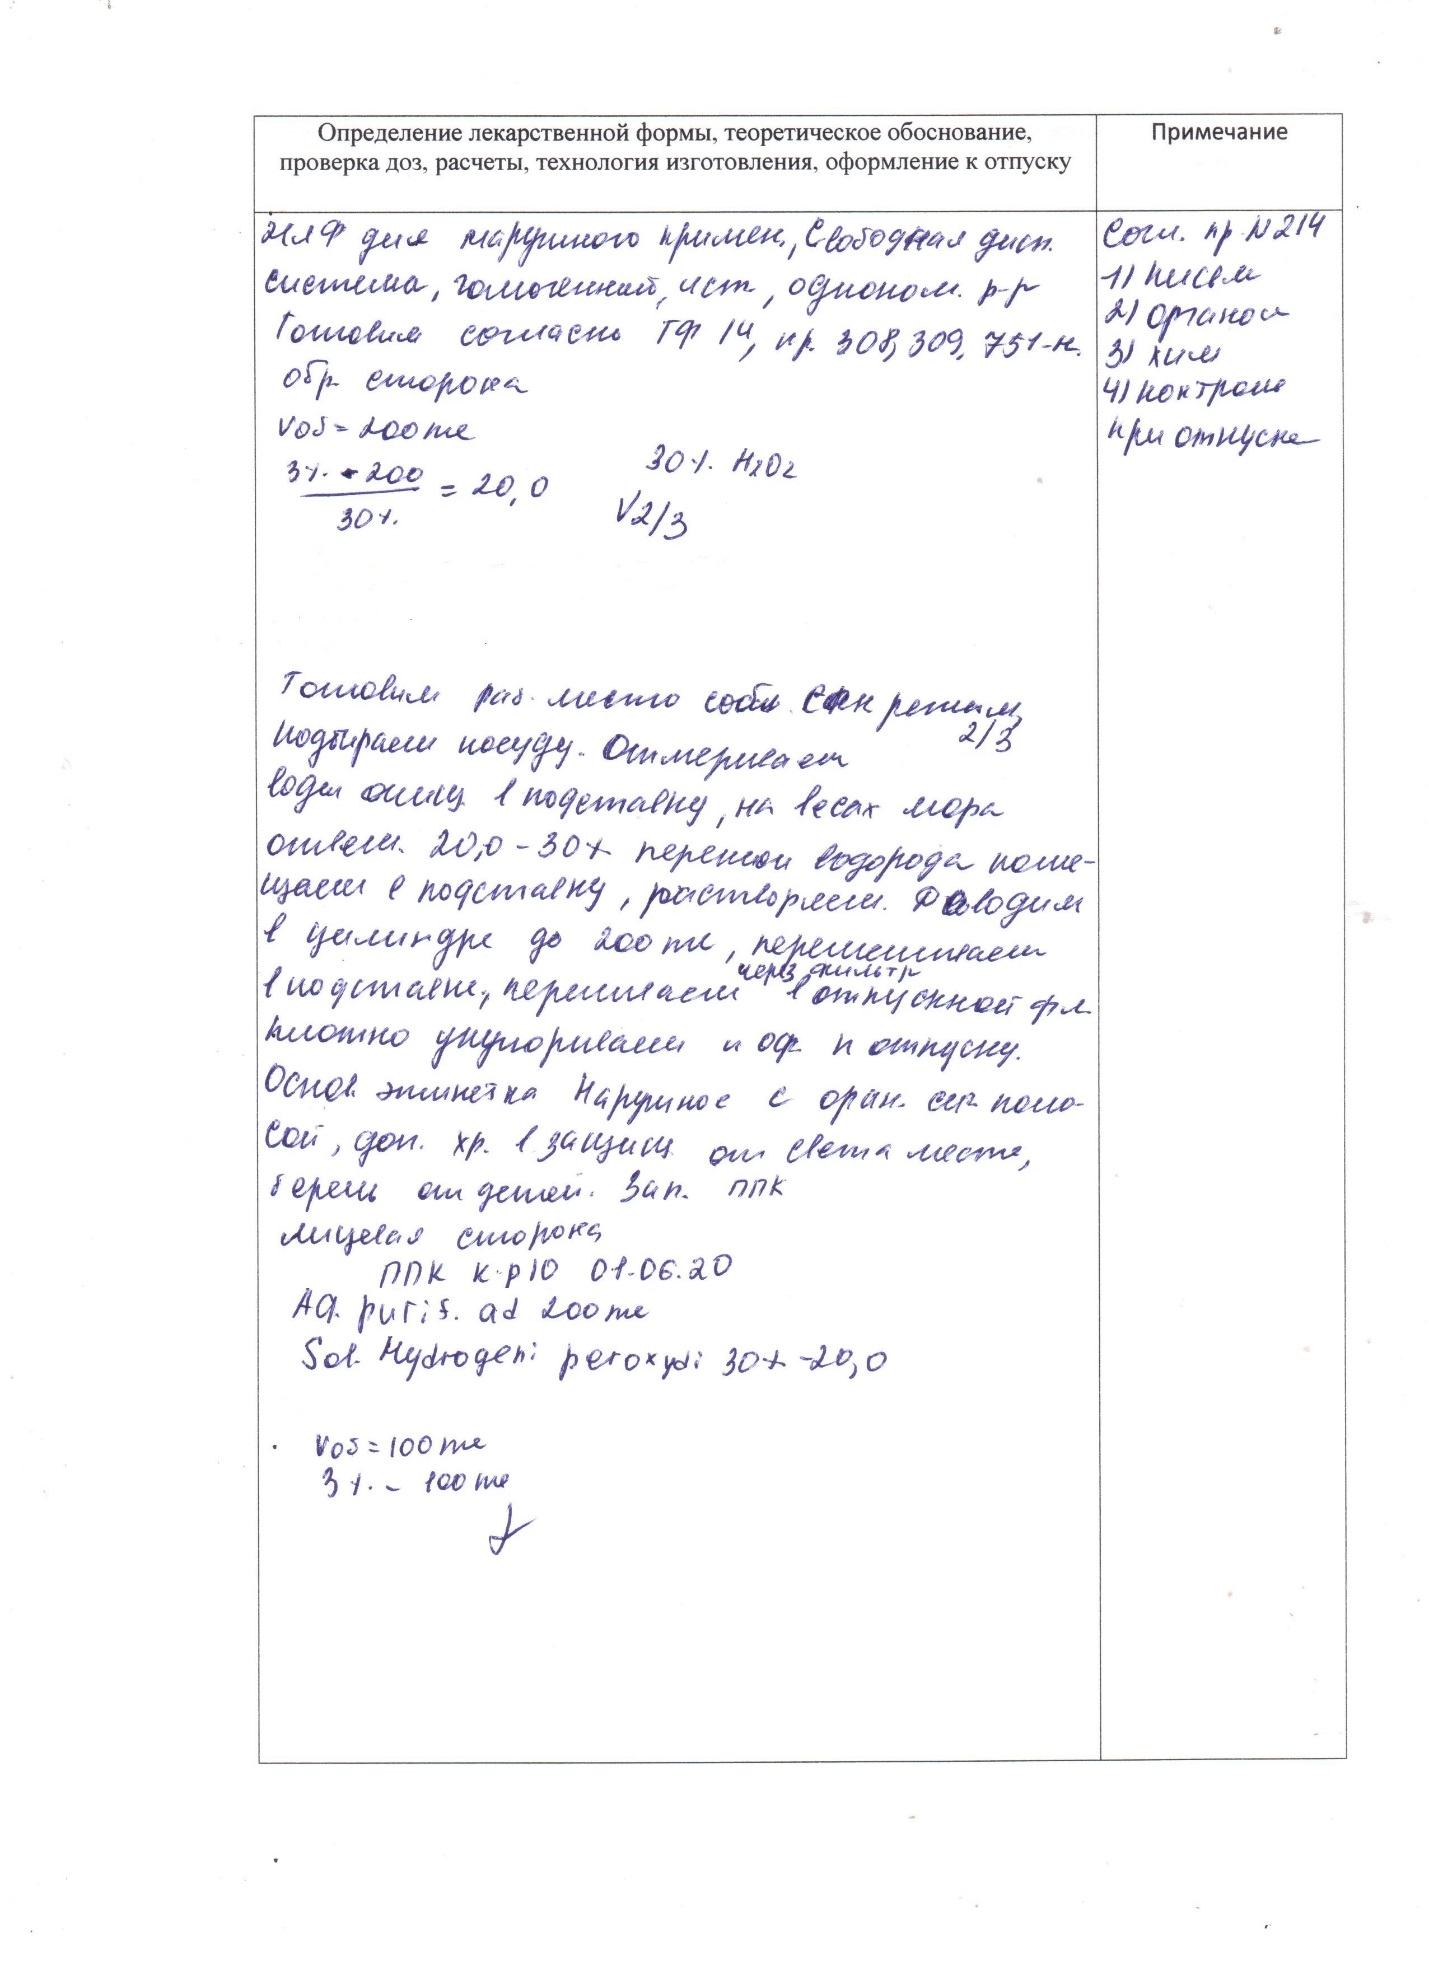 Определение лекарственной формы, теоретическое обоснование,
проверка доз, расчеты, технология изготовления, оформление к отпуску
Примечание
ЖЛФ для наружного примен., Свободная дисп.
система, гомогенный, ист, одноном. р-р
Готовим согласно ГФ 14, пр. 308, 309, 751-н.
Обр сторона
Vоб = 200 мл
3% · 200 / 30% = 20,0
30%. H2O2
V2/3
Готовим раб. место собл. Сан режим,
подбираем посуду. Отмериваем 2/3
воды очищ в подставку, на весах мора
отвеш. 20,0 - 30% перекси водорода поме-
щаем в подставку, растворяем. Доводим
в цилиндре до 200 мл, перемешиваем
в подставке, переливаем через фильтр в отпускной фл.
плотно укупориваем и оф к отпуску.
Основ. этикетка Наружное с оран. сиг поло-
сой, доп. хр. в защищ от света месте,
беречь от детей. Зап. ППК
Лицевая сторона
ППК к рЮ 01.06.20
Aq. purif. ad 200 мл
Sol. Hydrogeni peroxydi 30% - 20,0
Vоб = 100 мл
3%. - 100 мл
Согл. пр. N 214
1) письм
2) органол
3) хим
4) контроль
при отпуске